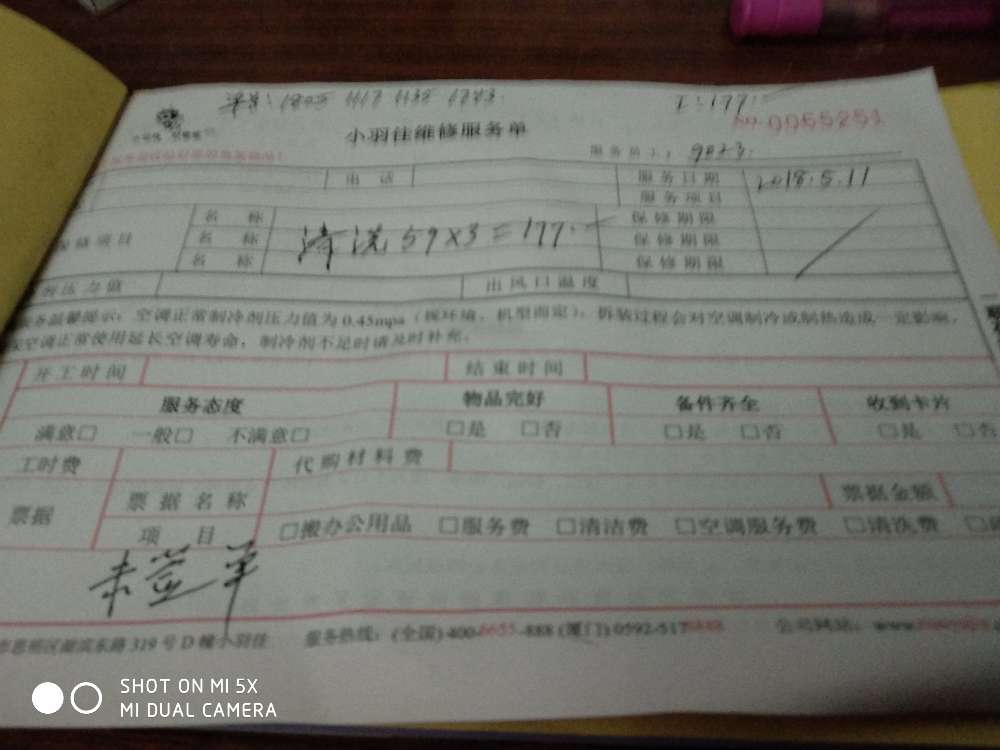 单号:1805 1117 1132 1223. I:177.-
小羽佳维修服务单 No.0055251
服务员工: 9023.
电 话 服务日期 2018.5.11
服务项目
名 称 保修期限
维修项目 名 称 清洗 59×3=177.- 保修期限
名 称 保修期限
压力值 出风口温度
温馨提示:空调正常制冷剂压力值为 0.45mpa(视环境、机型而定)。拆装过程会对空调制冷或制热造成一定影响,
空调正常使用延长空调寿命,制冷剂不足时请及时补充。
开工时间 结束时间
服务态度 物品完好 备件齐全 收到卡片
满意□ 一般□ 不满意□ □是 □否 □是 □否 □是 □否
工时费 代购材料费
票据 票据名称 票据金额
项 目 □搬办公用品 □服务费 □清洁费 □空调服务费 □清洗费
未签单
市思明区湖滨东路 319 号 D 幢小羽佳 服务热线:(全国) 400-6655-888 (厦门) 0592-5178888 公司网站:www.
SHOT ON MI 5X
MI DUAL CAMERA